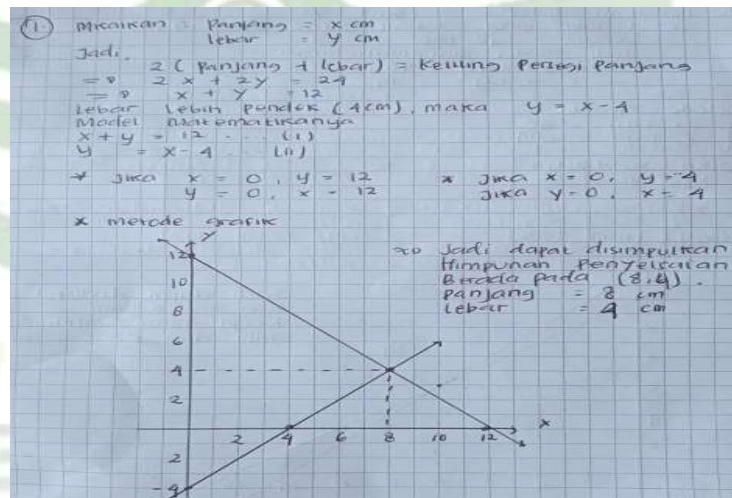 1. Misalkan : Panjang = x cm
lebar = y cm
Jadi.
2 ( Panjang + lebar ) = Keliling Persegi Panjang
=> 2x + 2y = 24
=> x + y = 12
Lebar lebih pendek (4cm), maka y = x - 4
Model Matematikanya
x + y = 12 ... (i)
y = x - 4 ... (ii)
* Jika x = 0, y = 12 * Jika x = 0, y = -4
y = 0, x = 12 Jika y = 0, x = 4
* metode grafik
=> Jadi dapat disimpulkan
Himpunan Penyelesaian
Berada pada (8,4).
Panjang = 8 cm
lebar = 4 cm
y
12
10
8
6
4
2
2 4 6 8 10 12 x
2
-4